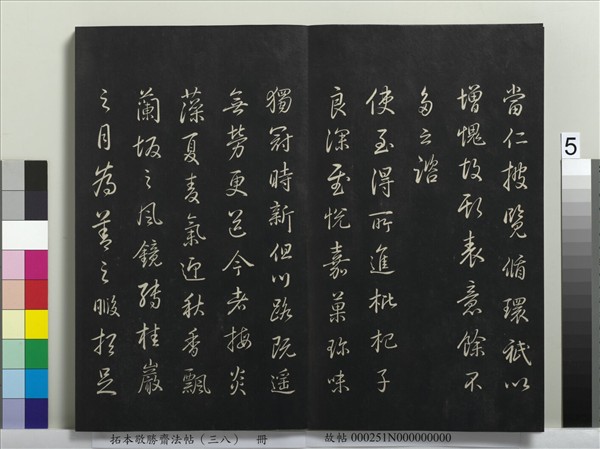 當仁披覽循環祇以
增愧故表意餘不
多云諮
使至得所進枇杷子
良深慰悅嘉菓珍味
獨冠時新但川路既遥
無勞更送今者梅炎
藻夏麦氣迎秋香飄
蘭坂之風鏡轉桂巖
之月為善之暇想足
5
拓本敬勝齋法帖（三八） 冊
故帖 000251N000000000